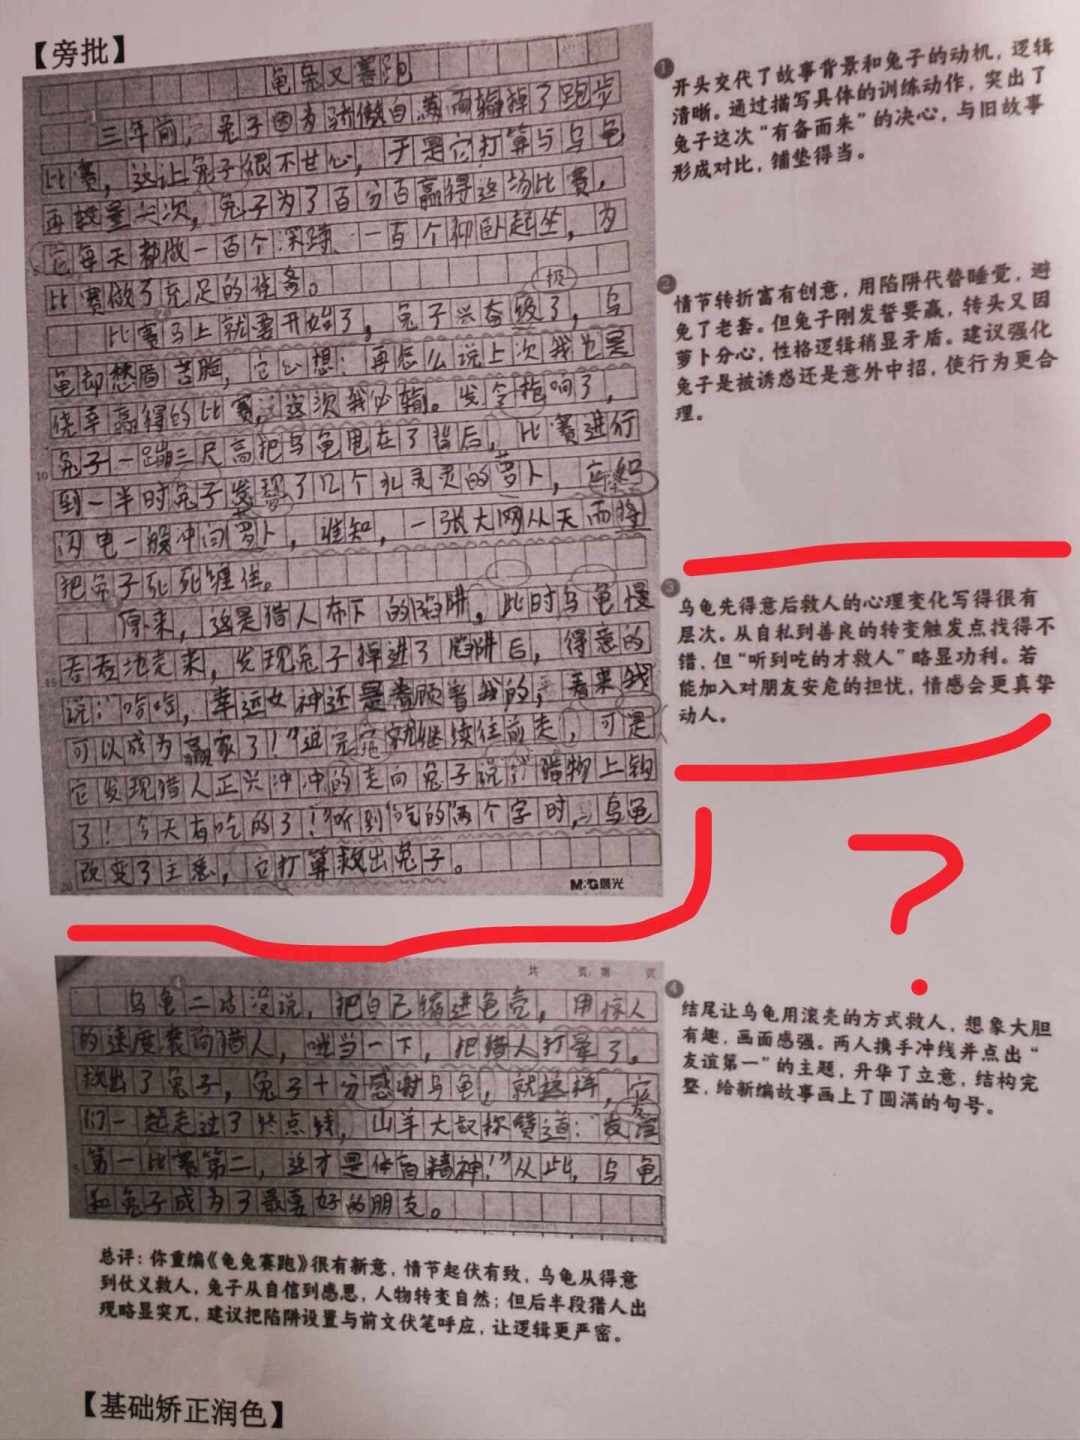 【旁批】
龟兔又赛跑
三年前，兔子因为骄傲自满而输掉了跑步
比赛，这让兔子很不甘心，于是它打算与乌龟
再较量一次，兔子为了百分百赢得这场比赛，
它每天都做一百个深蹲、一百个仰卧起坐，为
比赛做了充足的准备。
比赛马上就要开始了，兔子兴奋级了，乌
极
龟却愁眉苦脸，它心想：再怎么说上次我也是
侥幸赢得的比赛，这次我必输。发令枪响了，
兔子一蹦三尺高把乌龟甩在了背后，比赛进行
到一半时兔子发现了几个水灵灵的萝卜，
闪电一般冲向萝卜，谁知，一张大网从天而降
把兔子死死缠住。
原来，这是猎人布下的陷阱，此时乌龟慢
吞吞地走来，发现兔子掉进了陷阱后，得意的
说：“哈哈，幸运女神还是眷顾着我的，看来我
可以成为赢家了！”说完就继续往前走，可是
它发现猎人正兴冲冲的走向兔子说：“猎物上钩
了！今天有吃的了！”听到“吃的”两个字时，乌龟
改变了主意，它打算救出兔子。
M&G晨光
❶
开头交代了故事背景和兔子的动机，逻辑
清晰。通过描写具体的训练动作，突出了
兔子这次“有备而来”的决心，与旧故事
形成对比，铺垫得当。
❷
情节转折富有创意，用陷阱代替睡觉，避
免了老套。但兔子刚发誓要赢，转头又因
萝卜分心，性格逻辑稍显矛盾。建议强化
兔子是被诱惑还是意外中招，使行为更合
理。
❸
乌龟先得意后救人的心理变化写得很有
层次。从自私到善良的转变触发点找得不
错，但“听到吃的才救人”略显功利。若
能加入对朋友安危的担忧，情感会更真挚
动人。
?
共 页 第 页
乌龟二话没说，把自己缩进龟壳，用惊人
的速度袭向猎人，咣当一下，把猎人打晕了。
救出了兔子，兔子十分感谢乌龟，就这样，它
们一起走过了终点线，山羊大叔称赞道：“友谊
第一比赛第二，这才是体育精神！”从此，乌龟
和兔子成为了最要好的朋友。
❹
结尾让乌龟用滚壳的方式救人，想象大胆
有趣，画面感强。两人携手冲线并点出“
友谊第一”的主题，升华了立意，结构完
整，给新编故事画上了圆满的句号。
总评：你重编《龟兔赛跑》很有新意，情节起伏有致，乌龟从得意
到仗义救人，兔子从自信到感恩，人物转变自然；但后半段猎人出
现略显突兀，建议把陷阱设置与前文伏笔呼应，让逻辑更严密。
【基础矫正润色】